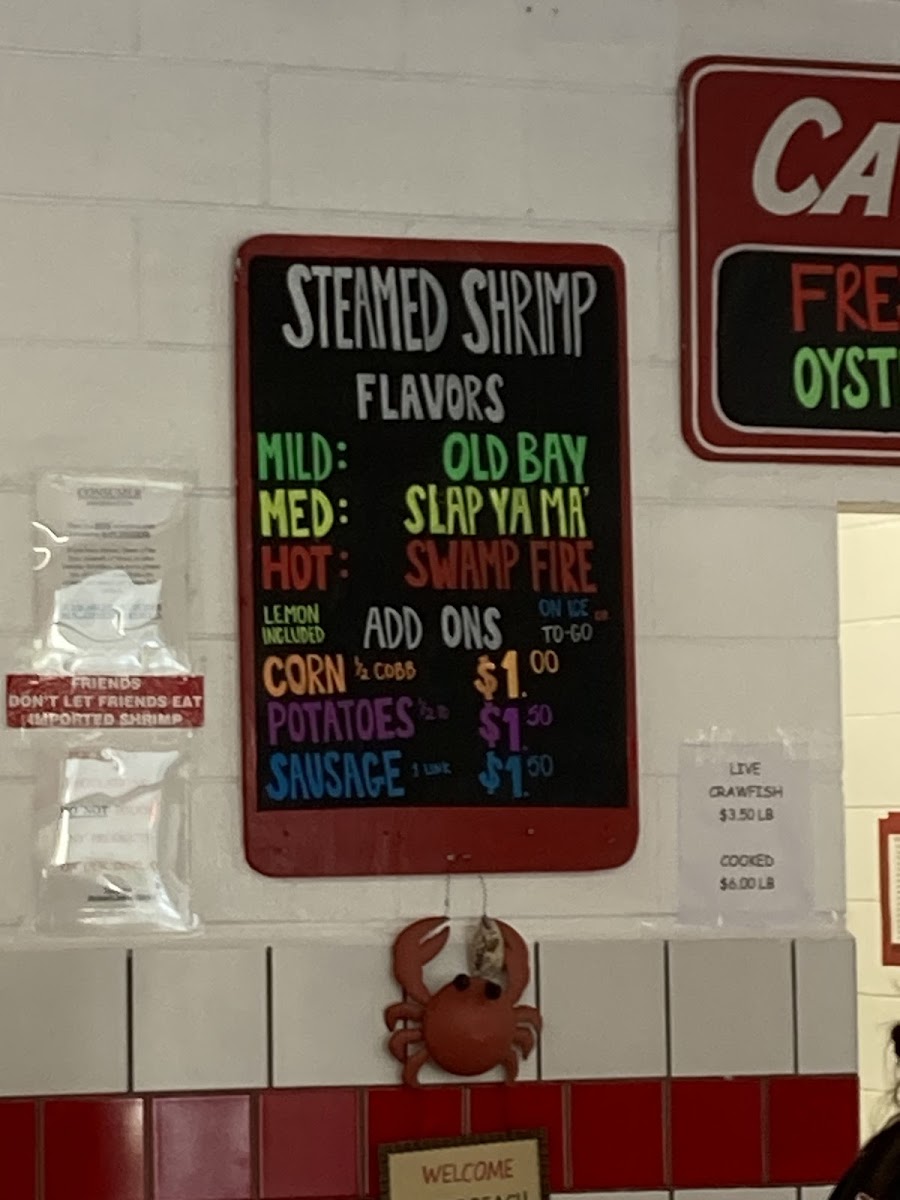 STEAMED SHRIMP
FLAVORS
MILD: OLD BAY
MED: SLAP YA MA'
HOT: SWAMP FIRE
LEMON INCLUDED
ADD ONS
ON ICE OR
TO-GO
CORN ½ COBB $1.00
POTATOES ½ lb $1.50
SAUSAGE 1 LINK $1.50
CA
FRE
OYST
CONSUMER
FRIENDS
DON'T LET FRIENDS EAT
IMPORTED SHRIMP
DO NOT
LIVE
CRAWFISH
$3.50 LB
COOKED
$6.00 LB
WELCOME
BEACH